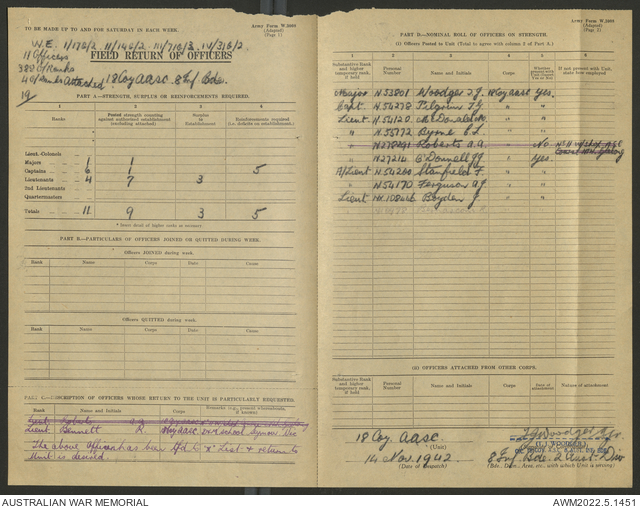 Army Form W.3008
(Adapted)
(Page 1)
TO BE MADE UP TO AND FOR SATURDAY IN EACH WEEK.
W.E. 1/176/2 11/146/2 111/716/3 1V/316/2
FIELD RETURN OF OFFICERS
11 Officers
383 O/Ranks
4 O/Ranks Attached
18 Coy AASC 8 Inf Bde.
PART A—STRENGTH, SURPLUS OR REINFORCEMENTS REQUIRED.
1 2 3 4 5
Posted strength counting against authorised establishment (excluding attached)
Surplus to Establishment
Reinforcements required (i.e. deficits on establishment)
Lieut.-Colonels
Majors 1 1
Captains 6 1 5
Lieutenants 4 7 3
2nd Lieutenants
Quartermasters
Totals 11 9 3 5
PART B.—PARTICULARS OF OFFICERS JOINED OR QUITTED DURING WEEK.
Officers JOINED during week.
Rank Name Corps Date
Officers QUITTED during week.
Rank Name Corps Date
PART C.—DESCRIPTION OF OFFICERS WHOSE RETURN TO THE UNIT IS PARTICULARLY REQUESTED.
Rank Name and Initials Corps Remarks (e.g., present whereabouts, if known)
Lieut Roberts
Lieut. Bennett R.
The above Officer has been tfd to "X" List & return to
Unit is desired.
Army Form W.3008
(Adapted)
(Page 2)
PART D—NOMINAL ROLL OF OFFICERS ON STRENGTH.
(i) Officers Posted to Unit (Total to agree with column 2 of Part A.)
1 2 3 4 5 6
Substantive Rank and higher temporary rank, if held
Personal Number
Name and Initials
Corps
Whether present with Unit (Insert Yes or No)
If not present with Unit, state how employed
Major N.53801 Woodger T.J. 18 Coy AASC Yes.
Capt. N.56278 Pilgrim
Lieut N.56120 McDonald
" N.55772 Ayme " "
" Roberts A.A. " No
" N.27216 O'Donnell " Yes.
A/Lieut N.56200 Stanfield F. " "
" N.56170 Ferguson A.J. " "
Lieut Boyden J. " "
(ii) OFFICERS ATTACHED FROM OTHER CORPS.
Substantive Rank and higher temporary rank, if held
Personal Number
Name and Initials
Corps
Date of attachment
Nature of attachment
18 Coy. AASC.
(Unit)
T.J. Woodger Major
14 Nov. 1942
(Date of Despatch)
8 Inf Bde. 2 Aust. Div
(Bde., Div., Area, etc., with which Unit is serving)
AUSTRALIAN WAR MEMORIAL
AWM2022.5.1451